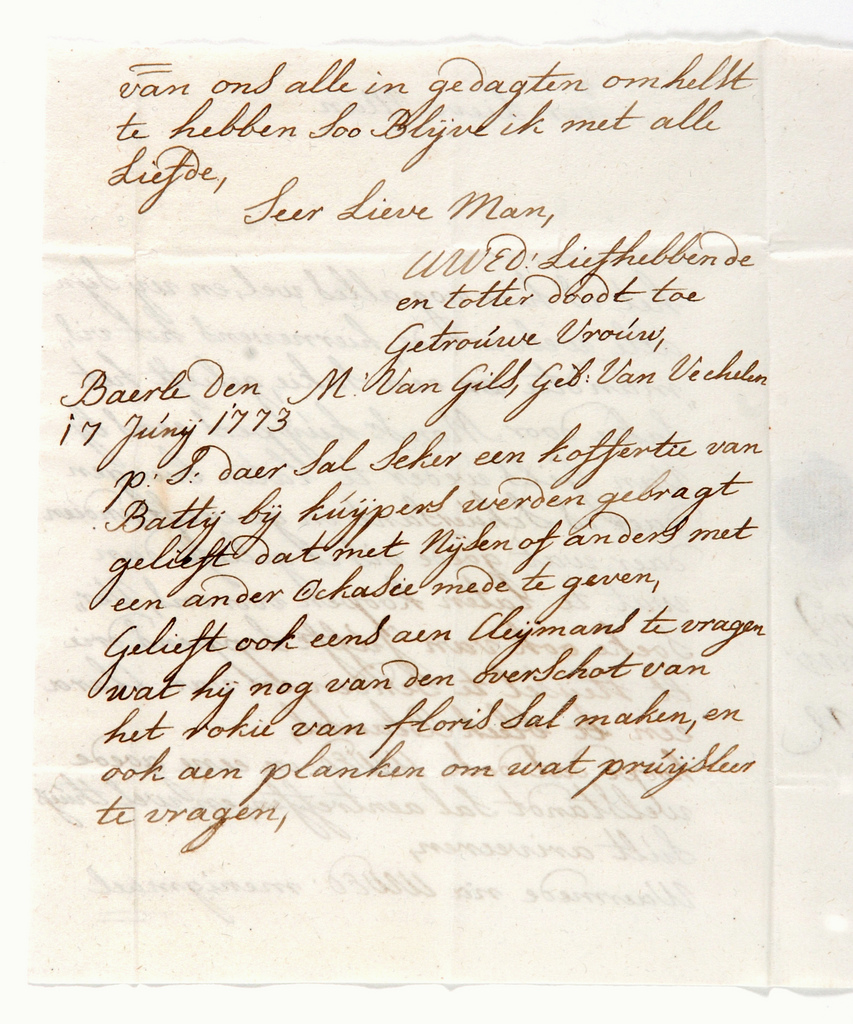 van ons alle in gedagten omhelst
te hebben Soo Blijve ik met alle
Liefde,
Seer Lieve Man,
UWEd: Liefhebbende
en totter doodt toe
Getroúwe Vroúw,
M: Van Gils, Geb: Van Vechelen
Baerle den
17 Júnij 1773
p: S: daer Sal Seker een koffertie van
Battij bij kúijpers werden gebragt
gelieft dat met Nijsen of anders met
een ander Ockasie mede te geven,
Gelieft ook eens aen Cleijmans te vragen
wat hij nog van den overschot van
het rokie van floris Sal maken, en
ook aen planken om wat prúijsleer
te vragen,